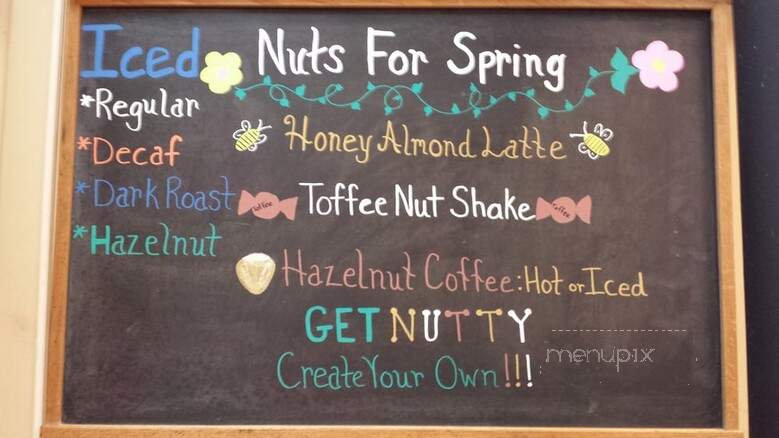 Iced
*Regular
*Decaf
*Dark Roast
*Hazelnut
Nuts For Spring
Honey Almond Latte
Toffee Toffee Nut Shake Toffee
Hazelnut Coffee: Hot or Iced
GET NUTTY
Create Your Own!!!
menupix